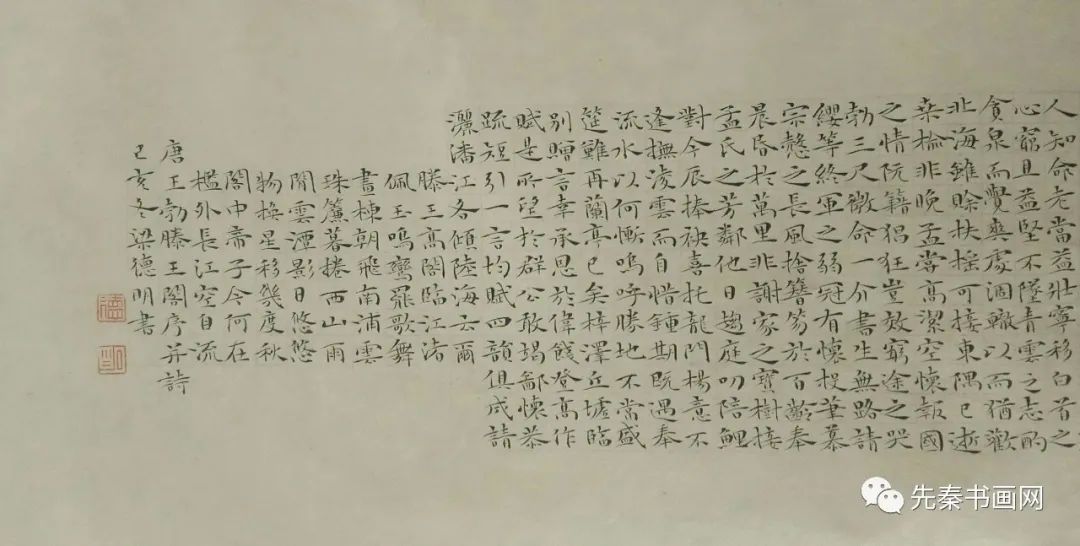 人知命老當益壯寧移白首之
心窮且益堅不墜青雲之志酌
貪泉而覺爽處涸轍以而猶歡
北海雖賒扶搖可接東隅已逝
桑榆非晚孟嘗高潔空懷報國
之情阮籍猖狂豈效窮途之哭
勃三尺微命一介書生無路請
纓等終軍之弱冠有懷投筆慕
宗慤之長風捨簪笏於百齡奉
晨昏於萬里非謝家之寶樹接
孟氏之芳鄰他日趨庭叨陪鯉
對今辰捧袂喜托龍門楊意不
逢撫凌雲而自惜鍾期既遇奉
流水以何慚嗚呼勝地不常盛
筵雖再蘭亭已矣梓澤丘墟臨
別贈言幸承恩於偉餞登高作
賦是所望於群公敢竭鄙懷恭
疏短引一言均賦四韻俱成請
灑潘江各傾陸海云爾
滕王高閣臨江渚
佩玉鳴鸞罷歌舞
畫棟朝飛南浦雲
珠簾暮捲西山雨
閒雲潭影日悠悠
物換星移幾度秋
閣中帝子今何在
檻外長江空自流
唐王勃滕王閣序并詩
己亥冬梁德明書
德
明
先秦书画网